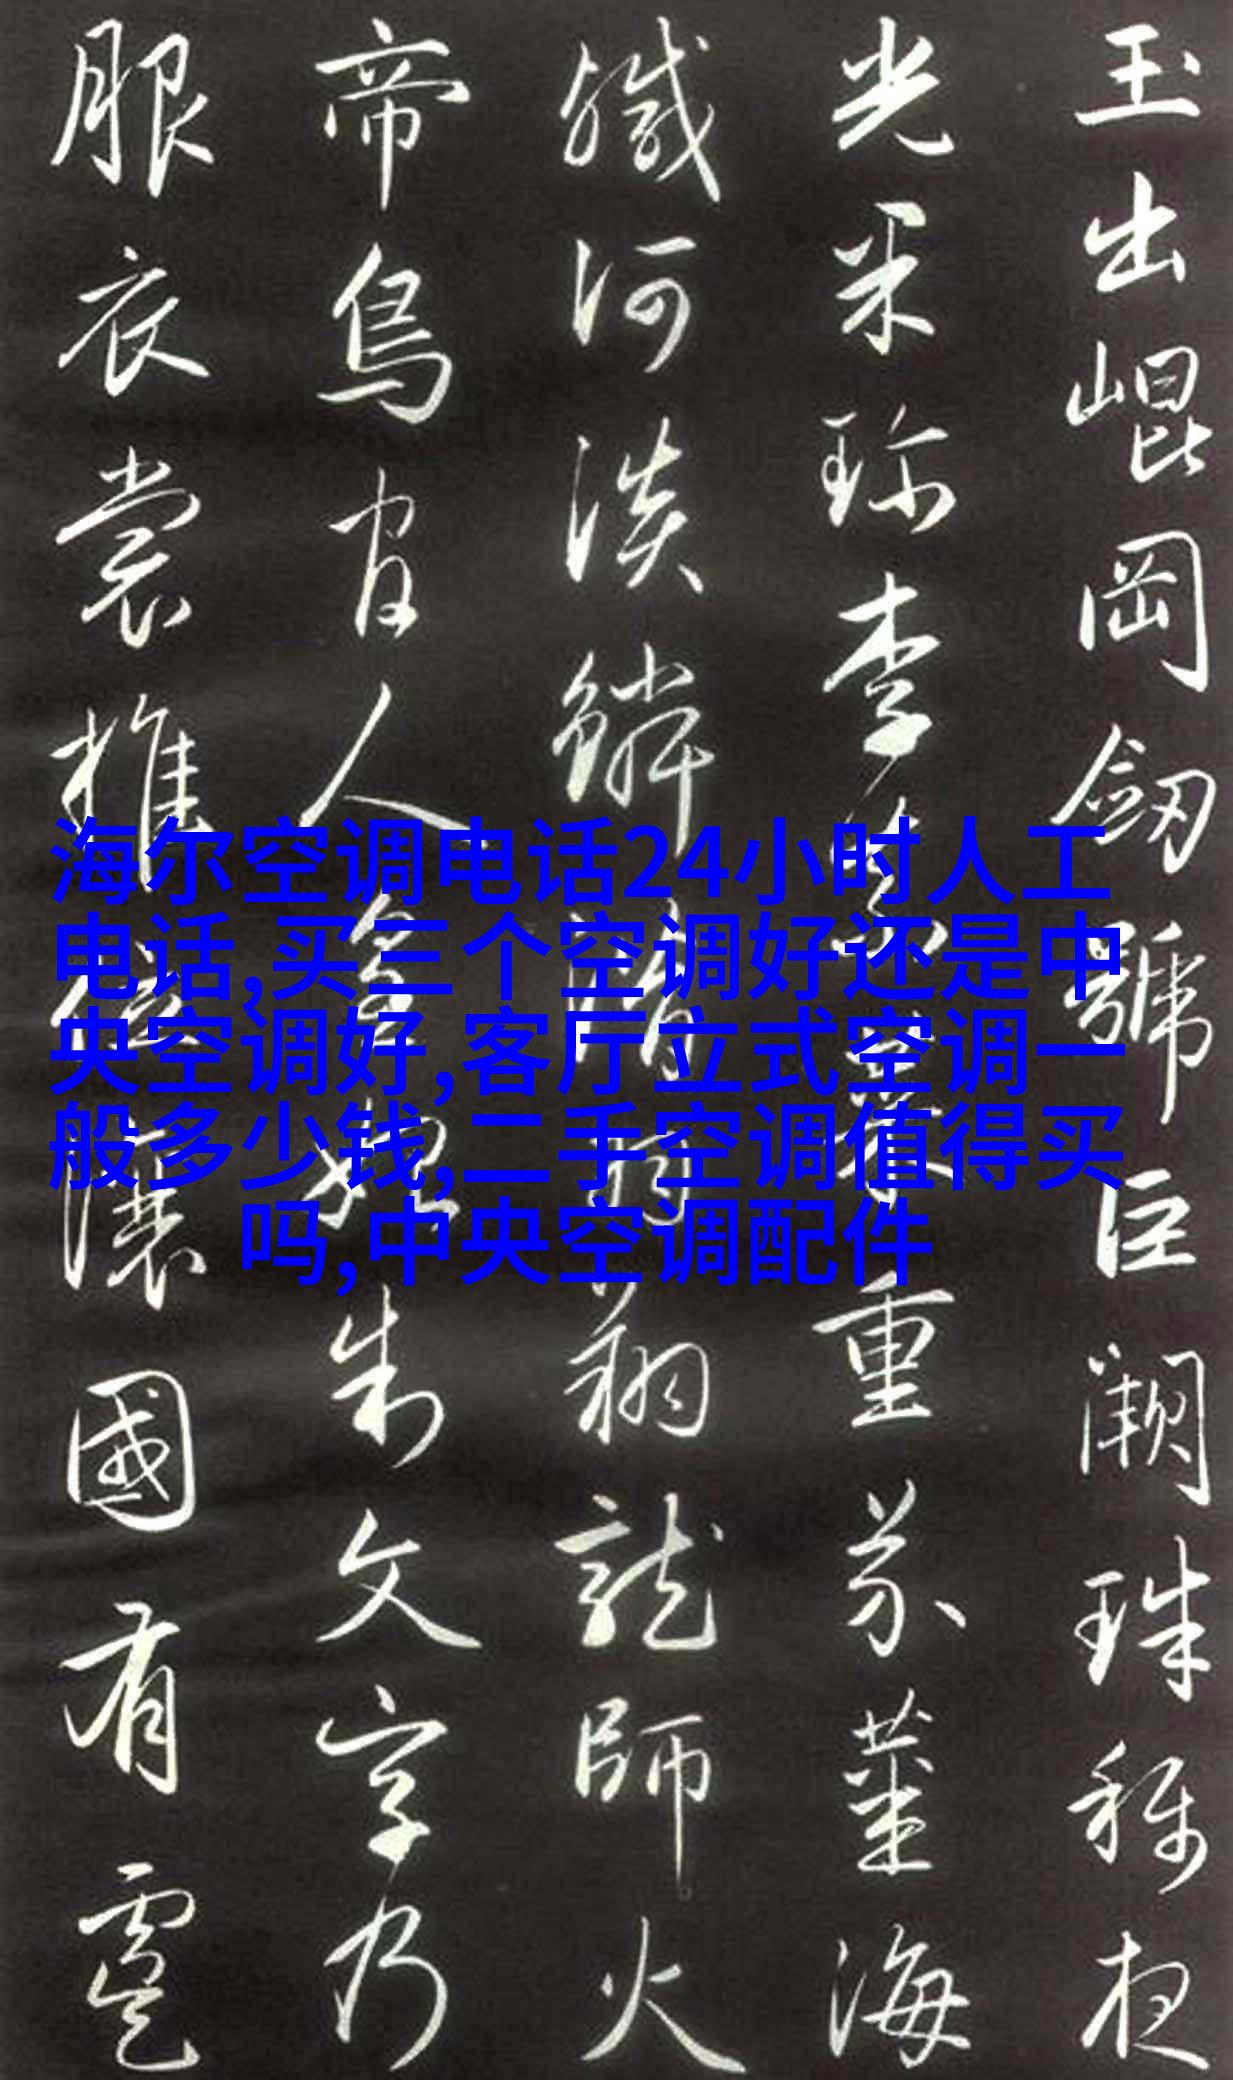 玉出崐岡劔號巨闕珠稱夜
光果珍李柰菜重芥薑海
鹹河淡鱗潛羽翔龍師火
帝鳥官人皇始制文字乃
服衣裳推位讓國有虞
海尔空调电话24小时人工
电话,买三个空调好还是中
央空调好,客厅立式空调一
般多少钱,二手空调值得买
吗,中央空调配件